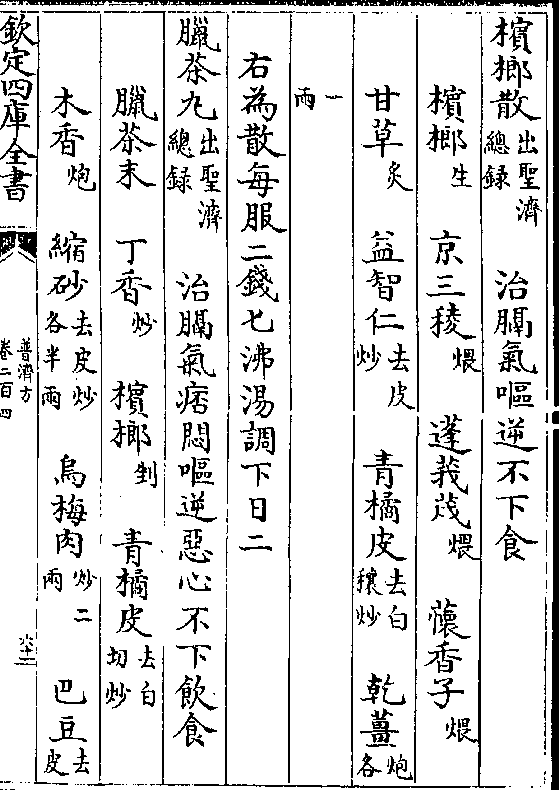 檳榔散出聖濟總録　治膈氣嘔逆不下食
檳榔生　京三稜煨　蓬莪茂煨　懐香子煨
甘草炙　益智仁去皮炒　青橘皮去白穰炒　乾薑炮各
一兩
右為散每服二錢匕沸湯調下日二
臘茶丸出聖濟總録　治膈氣痞悶嘔逆惡心不下飲食
臘茶末　丁香炒　檳榔剉　青橘皮去白切炒
木香炮　縮砂去皮炒各半兩　烏梅肉炒二兩　巴豆去皮
欽定四庫全書
普濟方
卷二百四
六十二